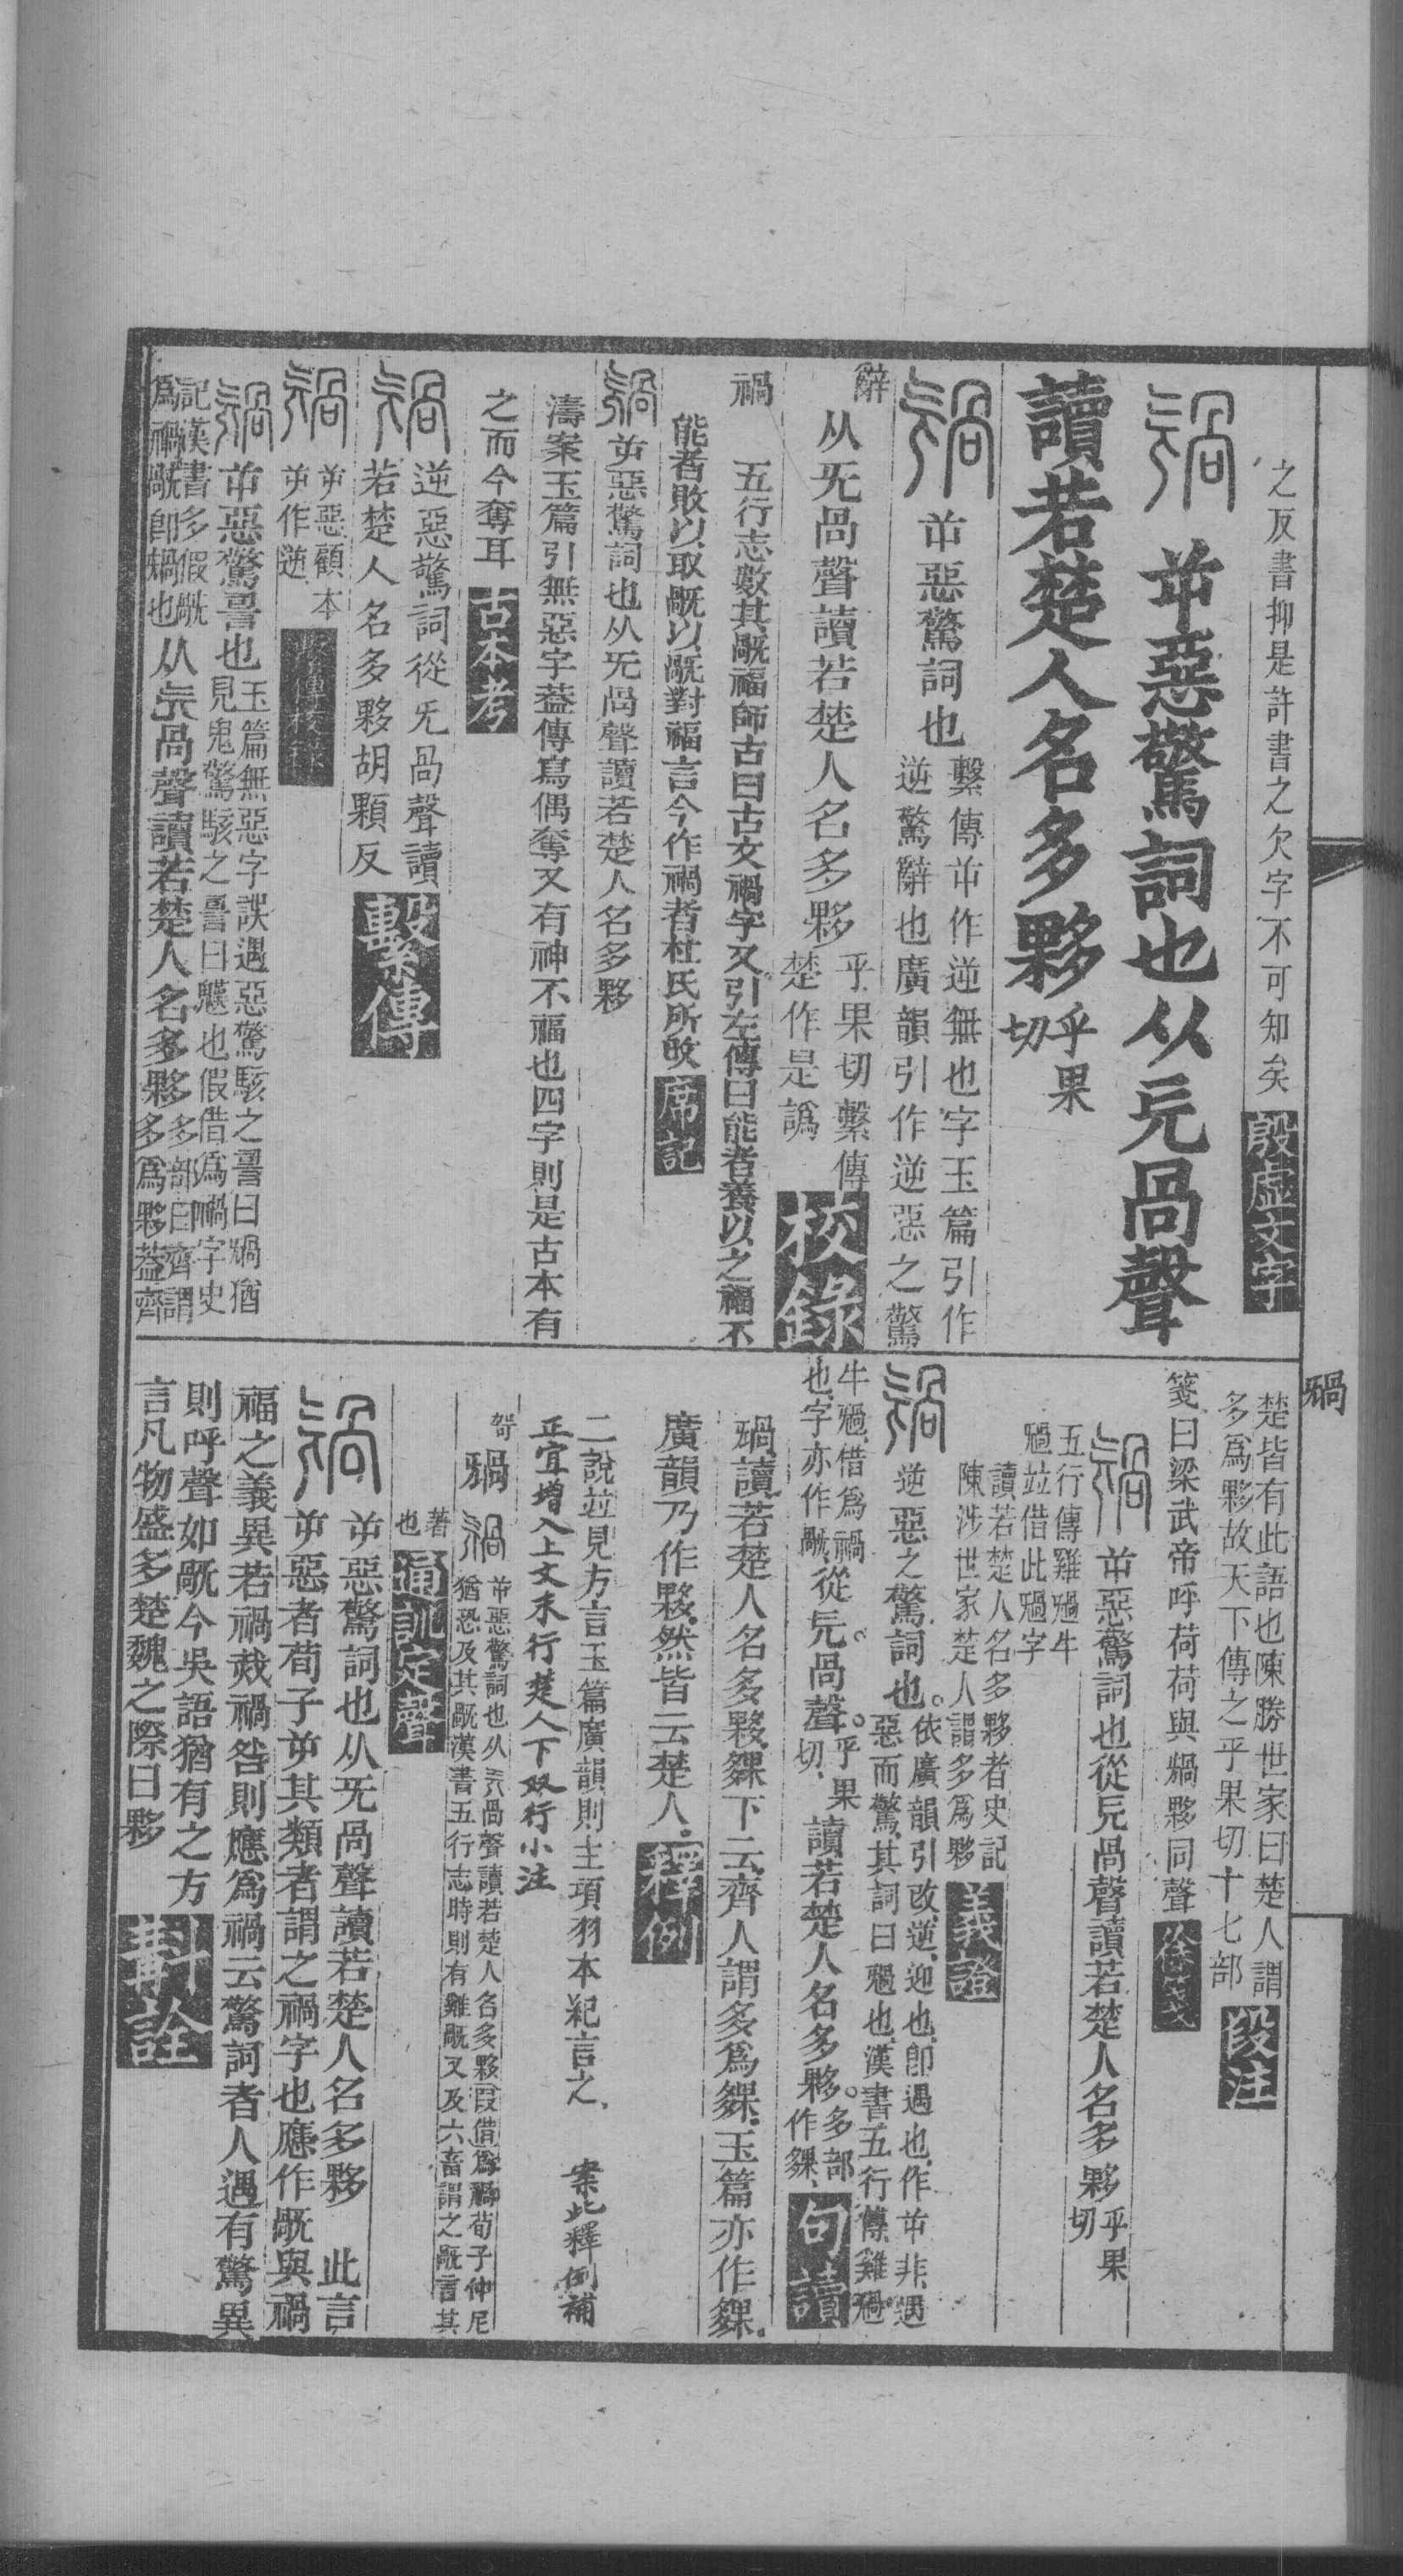 之反書抑是許書之欠字不可知矣
殷虛文字
屰惡驚詞也从旡咼聲
讀若楚人名多夥
乎果
切
屰惡驚詞也
繫傳屰作逆無也字玉篇引作
逆驚辭也廣韻引作逆惡之驚
辭
从旡咼聲讀若楚人名多夥
乎果切繫傳
楚作是譌
校錄
禍
五行志數其旤福師古曰古文禍字又引左傳曰能者養以之福不
能者敗以取旤以旤對福言今作禍者杜氏所改
席記
屰惡驚詞也从旡咼聲讀若楚人名多夥
濤案玉篇引無惡字葢傳寫偶奪又有神不福也四字則是古本有
之而今奪耳
古本考
逆惡驚詞從旡咼聲讀
若楚人名多夥胡顆反
繫傳
屰惡顧本
屰作逆
屰惡驚䛐也
玉篇無惡字誤遇惡驚駭之䛐曰𣄸猶
見鬼驚駭之䛐曰魕也假借爲禍字史
記漢書多假旤
爲禍旤卽𣄸也
从旡咼聲讀若楚人名多夥
多部曰齊謂
多爲夥葢齊
𣄸
楚皆有此語也陳勝世家曰楚人謂
多爲夥故天下傳之乎果切十七部
段注
箋曰梁武帝呼荷荷與𣄸夥同聲
徐箋
屰惡驚詞也從旡咼聲讀若楚人名多夥
乎果
切
五行傳雞𣄸牛
𣄸竝借此𣄸字
讀若楚人名多夥者史記
陳涉世家楚人謂多爲夥
義證
逆惡之驚詞也。
依廣韻引改逆迎也卽遇也作屰非遇
惡而驚其詞曰𣄸也漢書五行傳雞𣄸
牛𣄸借爲禍
也字亦作旤
從旡。咼聲。
乎果
切
讀若楚人名多夥。
多部
作錁
句讀
𣄸讀若楚人名多夥錁下云齊人謂多爲錁玉篇亦作錁
廣韻乃作夥然皆云楚人
釋例
二說竝見方言玉篇廣韻則主項羽本紀言之
案此釋例補
正宜增入上文末行楚人下双行小注
𣄸
屰惡驚詞也从旡咼聲讀若楚人名多夥叚借爲禍荀子仲尼
猶恐及其旤漢書五行志時則有雞旤又及六畜謂之旤言其
著
也
通訓定聲
屰惡驚詞也从旡咼聲讀若楚人名多夥　此言
屰惡者荀子屰其類者謂之禍字也應作旤與禍
福之義異若禍烖禍咎則應爲禍云驚詞者人遇有驚異
則呼聲如旤今吳語猶有之方
言凡物盛多楚魏之際曰夥
斠詮